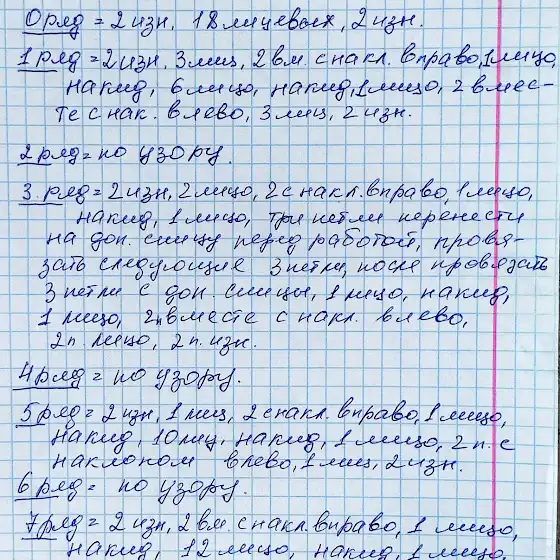 0 ряд = 2 изн, 18 лицевых, 2 изн.
1 ряд = 2 изн, 3 лиц, 2 вм. с накл. вправо, 1 лицо,
накид, 6 лицо, накид, 1 лицо, 2 вмес-
те с нак. влево, 3 лиц, 2 изн.
2 ряд = по узору.
3. ряд = 2 изн, 2 лицо, 2 с накл. вправо, 1 лицо,
накид, 1 лицо, три петли перенести
на доп. спицу перед работой, провя-
зать следующие 3 петли, после провязать
3 петли с доп. спицы, 1 лицо, накид,
1 лицо, 2п вместе с накл. влево,
2п. лицо, 2 п. изн.
4 ряд = по узору.
5 ряд = 2 изн, 1 лиц, 2 с накл. вправо, 1 лицо,
накид, 10 лиц, накид, 1 лицо, 2 п. с
наклоном влево, 1 лиц, 2 изн.
6 ряд = по узору.
7 ряд = 2 изн, 2 вм. с накл. вправо, 1 лицо,
накид, 12 лицо, накид, 1 лицо,